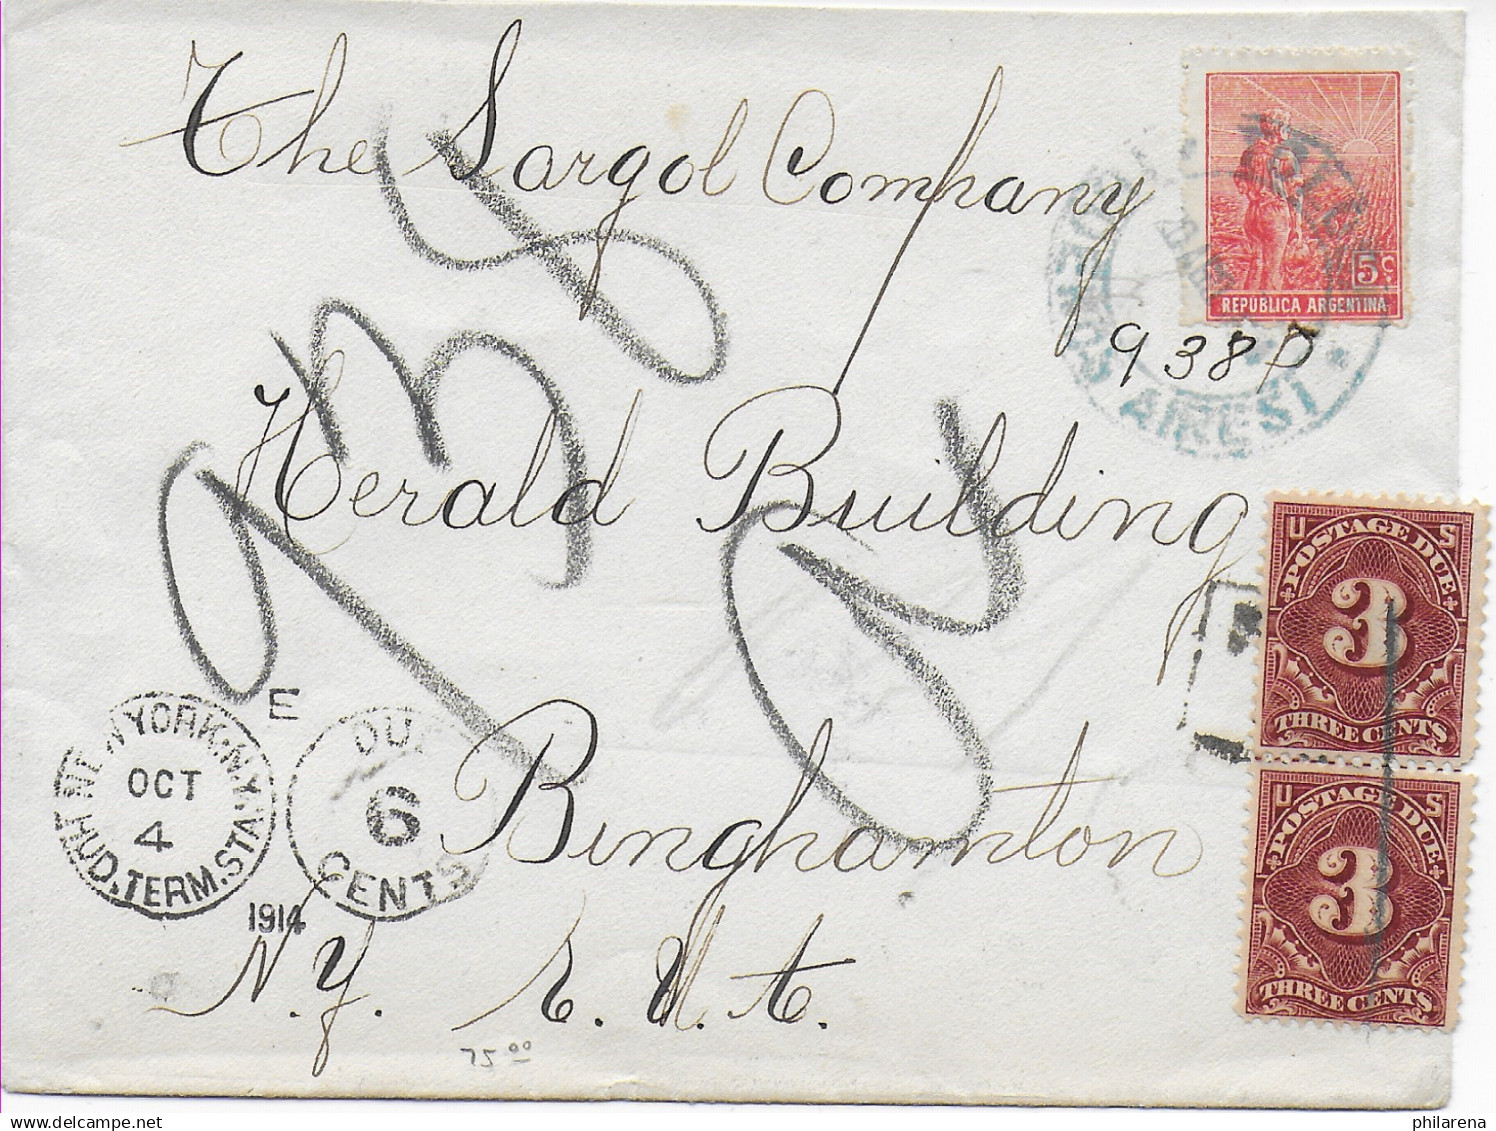 The Sargol Company
5c.
REPÚBLICA ARGENTINA
BUENOS AIRES
938P
938
Herald Building
U S
POSTAGE DUE
3
THREE CENTS
U S
POSTAGE DUE
3
THREE CENTS
E
NEW YORK, N.Y. HUD. TERM. STA.
OCT
4
1914
DUE
6
CENTS
Binghamton
N.Y. E.U.A.
75 00
philarena.com